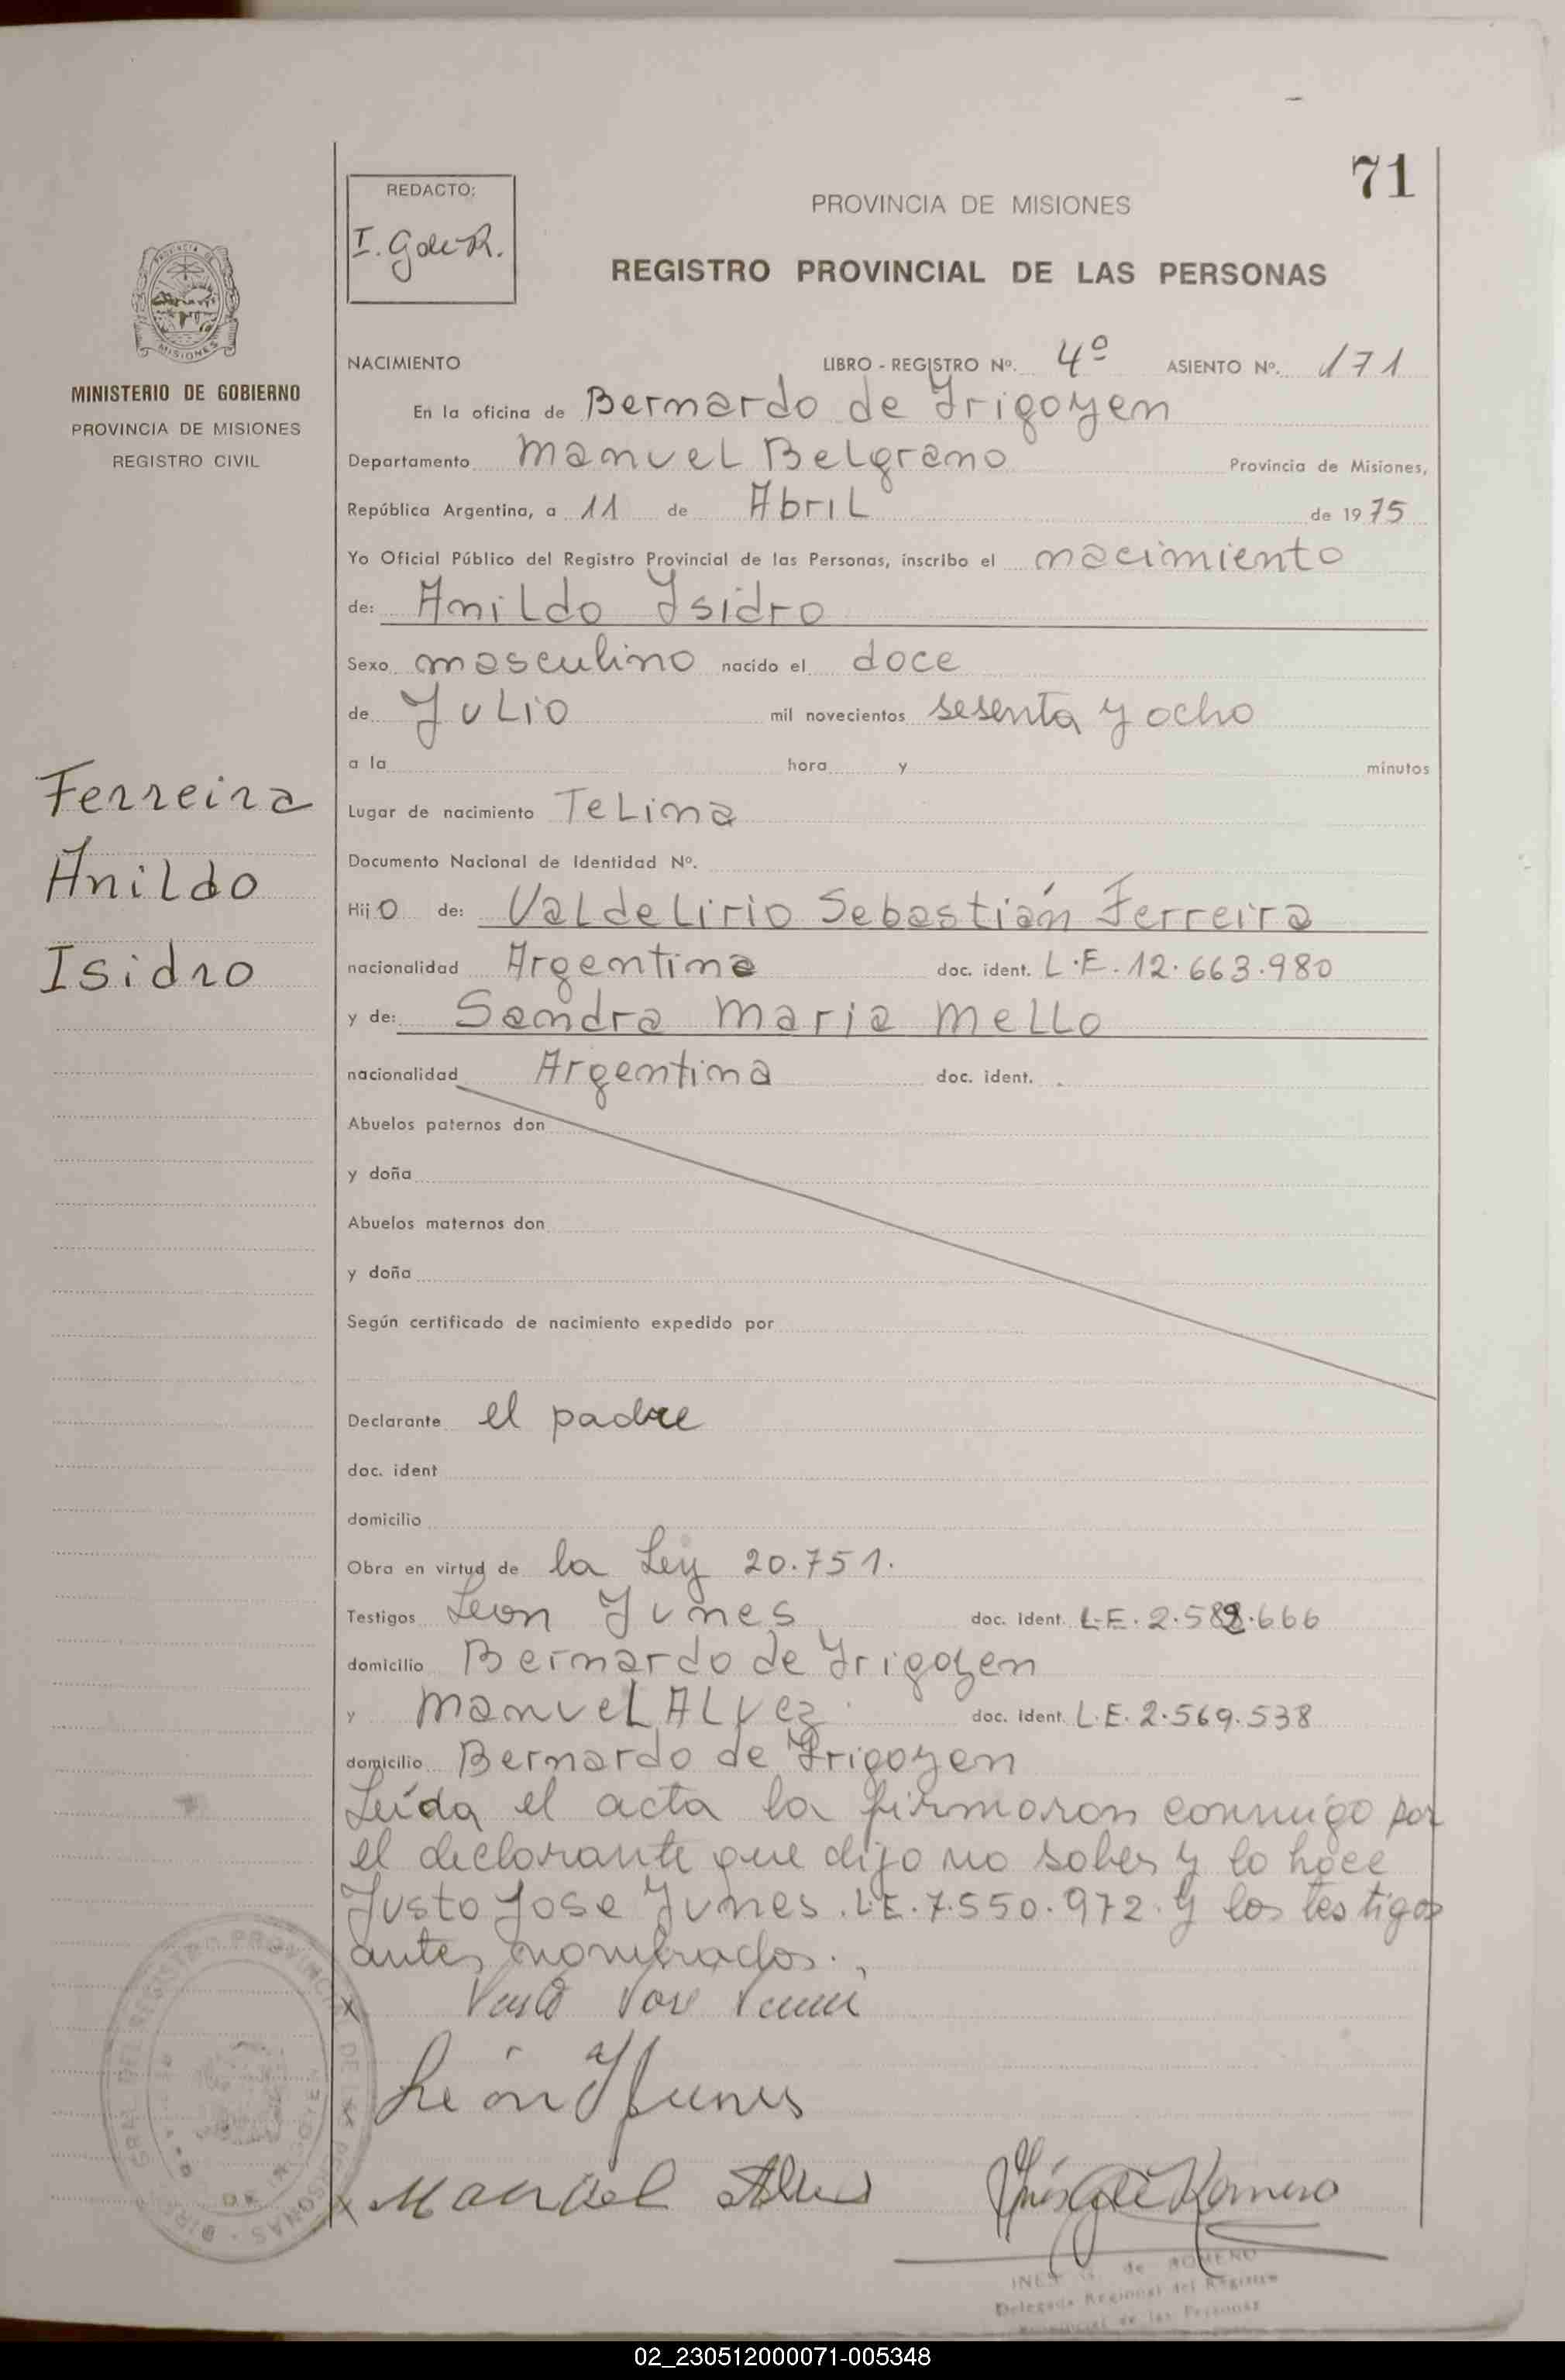 71
REDACTO:
I. G de R.
PROVINCIA DE MISIONES
REGISTRO PROVINCIAL DE LAS PERSONAS
MISIONES
MINISTERIO DE GOBIERNO
PROVINCIA DE MISIONES
REGISTRO CIVIL
NACIMIENTO LIBRO - REGISTRO Nº. 4º ASIENTO Nº. 171
En la oficina de Bernardo de Irigoyen
Departamento Manuel Belgrano Provincia de Misiones,
República Argentina, a 11 de Abril de 1975
Yo Oficial Público del Registro Provincial de las Personas, inscribo el nacimiento
de: Anildo Isidro
Sexo masculino nacido el doce
de Julio mil novecientos sesenta y ocho
a la hora y minutos
Ferreira
Anildo
Isidro
Lugar de nacimiento TeLina
Documento Nacional de Identidad Nº.
Hijo de: Valdelirio Sebastián Ferreira
nacionalidad Argentina doc. ident. L.E. 12.663.980
y de: Sandra Maria Mello
nacionalidad Argentina doc. ident.
Abuelos paternos don
y doña
Abuelos maternos don
y doña
Según certificado de nacimiento expedido por
Declarante el padre
doc. ident
domicilio
Obra en virtud de la Ley 20.751.
Testigos Leon Junes doc. ident. L.E. 2.582.666
domicilio Bernardo de Irigoyen
y Manuel Alvez doc. ident. L.E. 2.569.538
domicilio Bernardo de Irigoyen
Leída el acta la firmaron conmigo por
el declarante que dijo no saber y lo hace
Justo Jose Junes. L.E. 7.550.972. y los testigos
antes nombrados.
León Junes
Manuel Alves
Inés G de Romero
INES G. de ROMERO
Delegada Regional del Registro
Provincial de las Personas
02_230512000071-005348